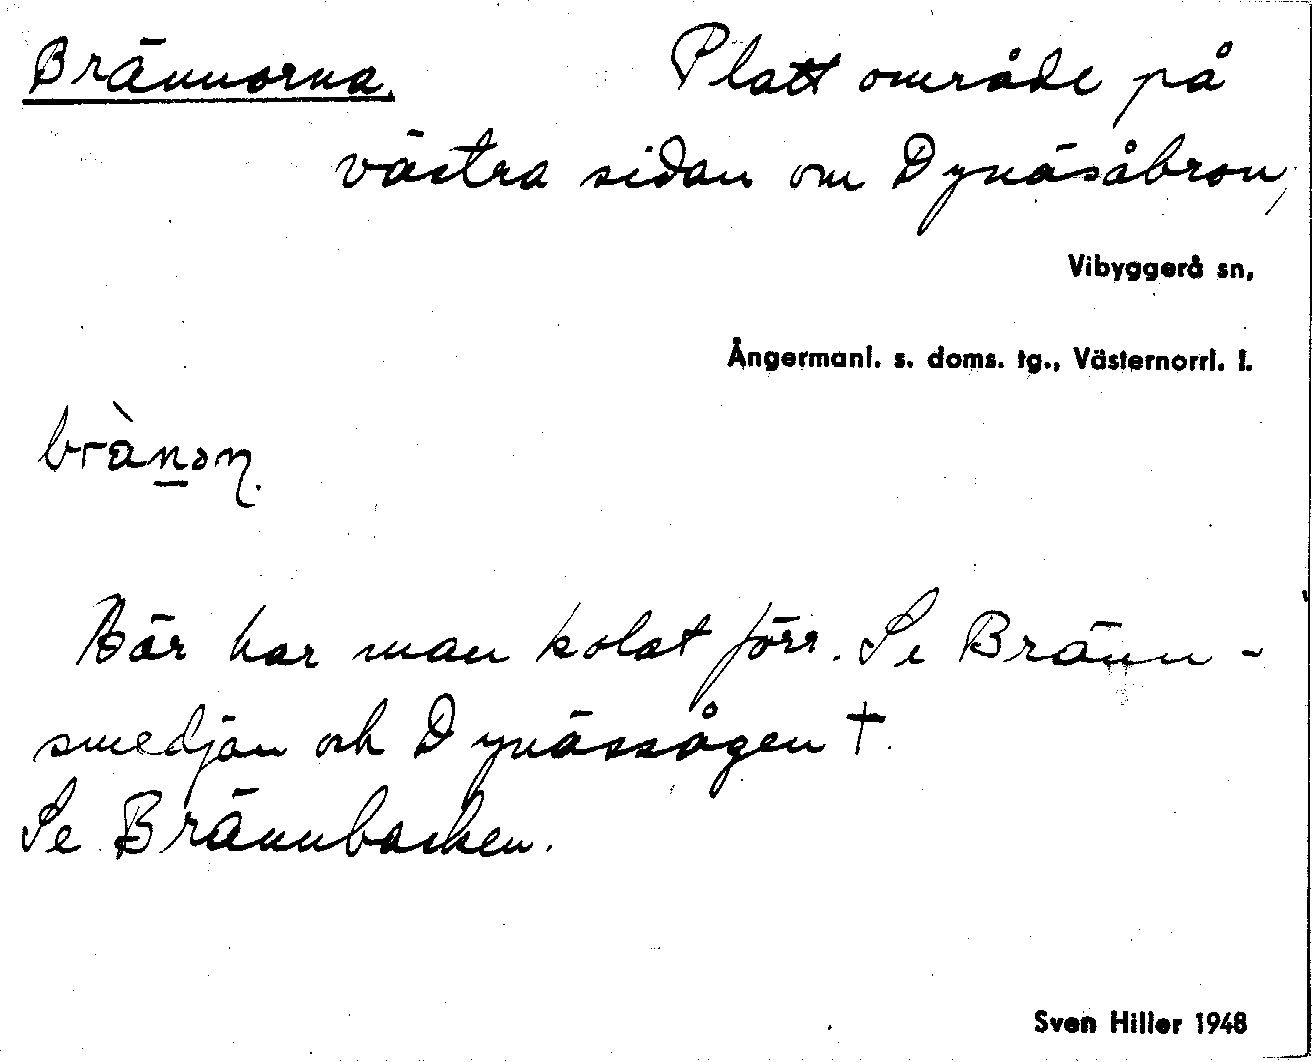 Brännorna. Platt område på
västra sidan om Dynäsåbron,
Vibyggerå sn,
Ångermanl. s. doms. tg., Västernorrl. l.
Här har man kolat förr. Se Bränn-
smedjan och Dynässågen †.
Se Brännbacken.
Sven Hiller 1948